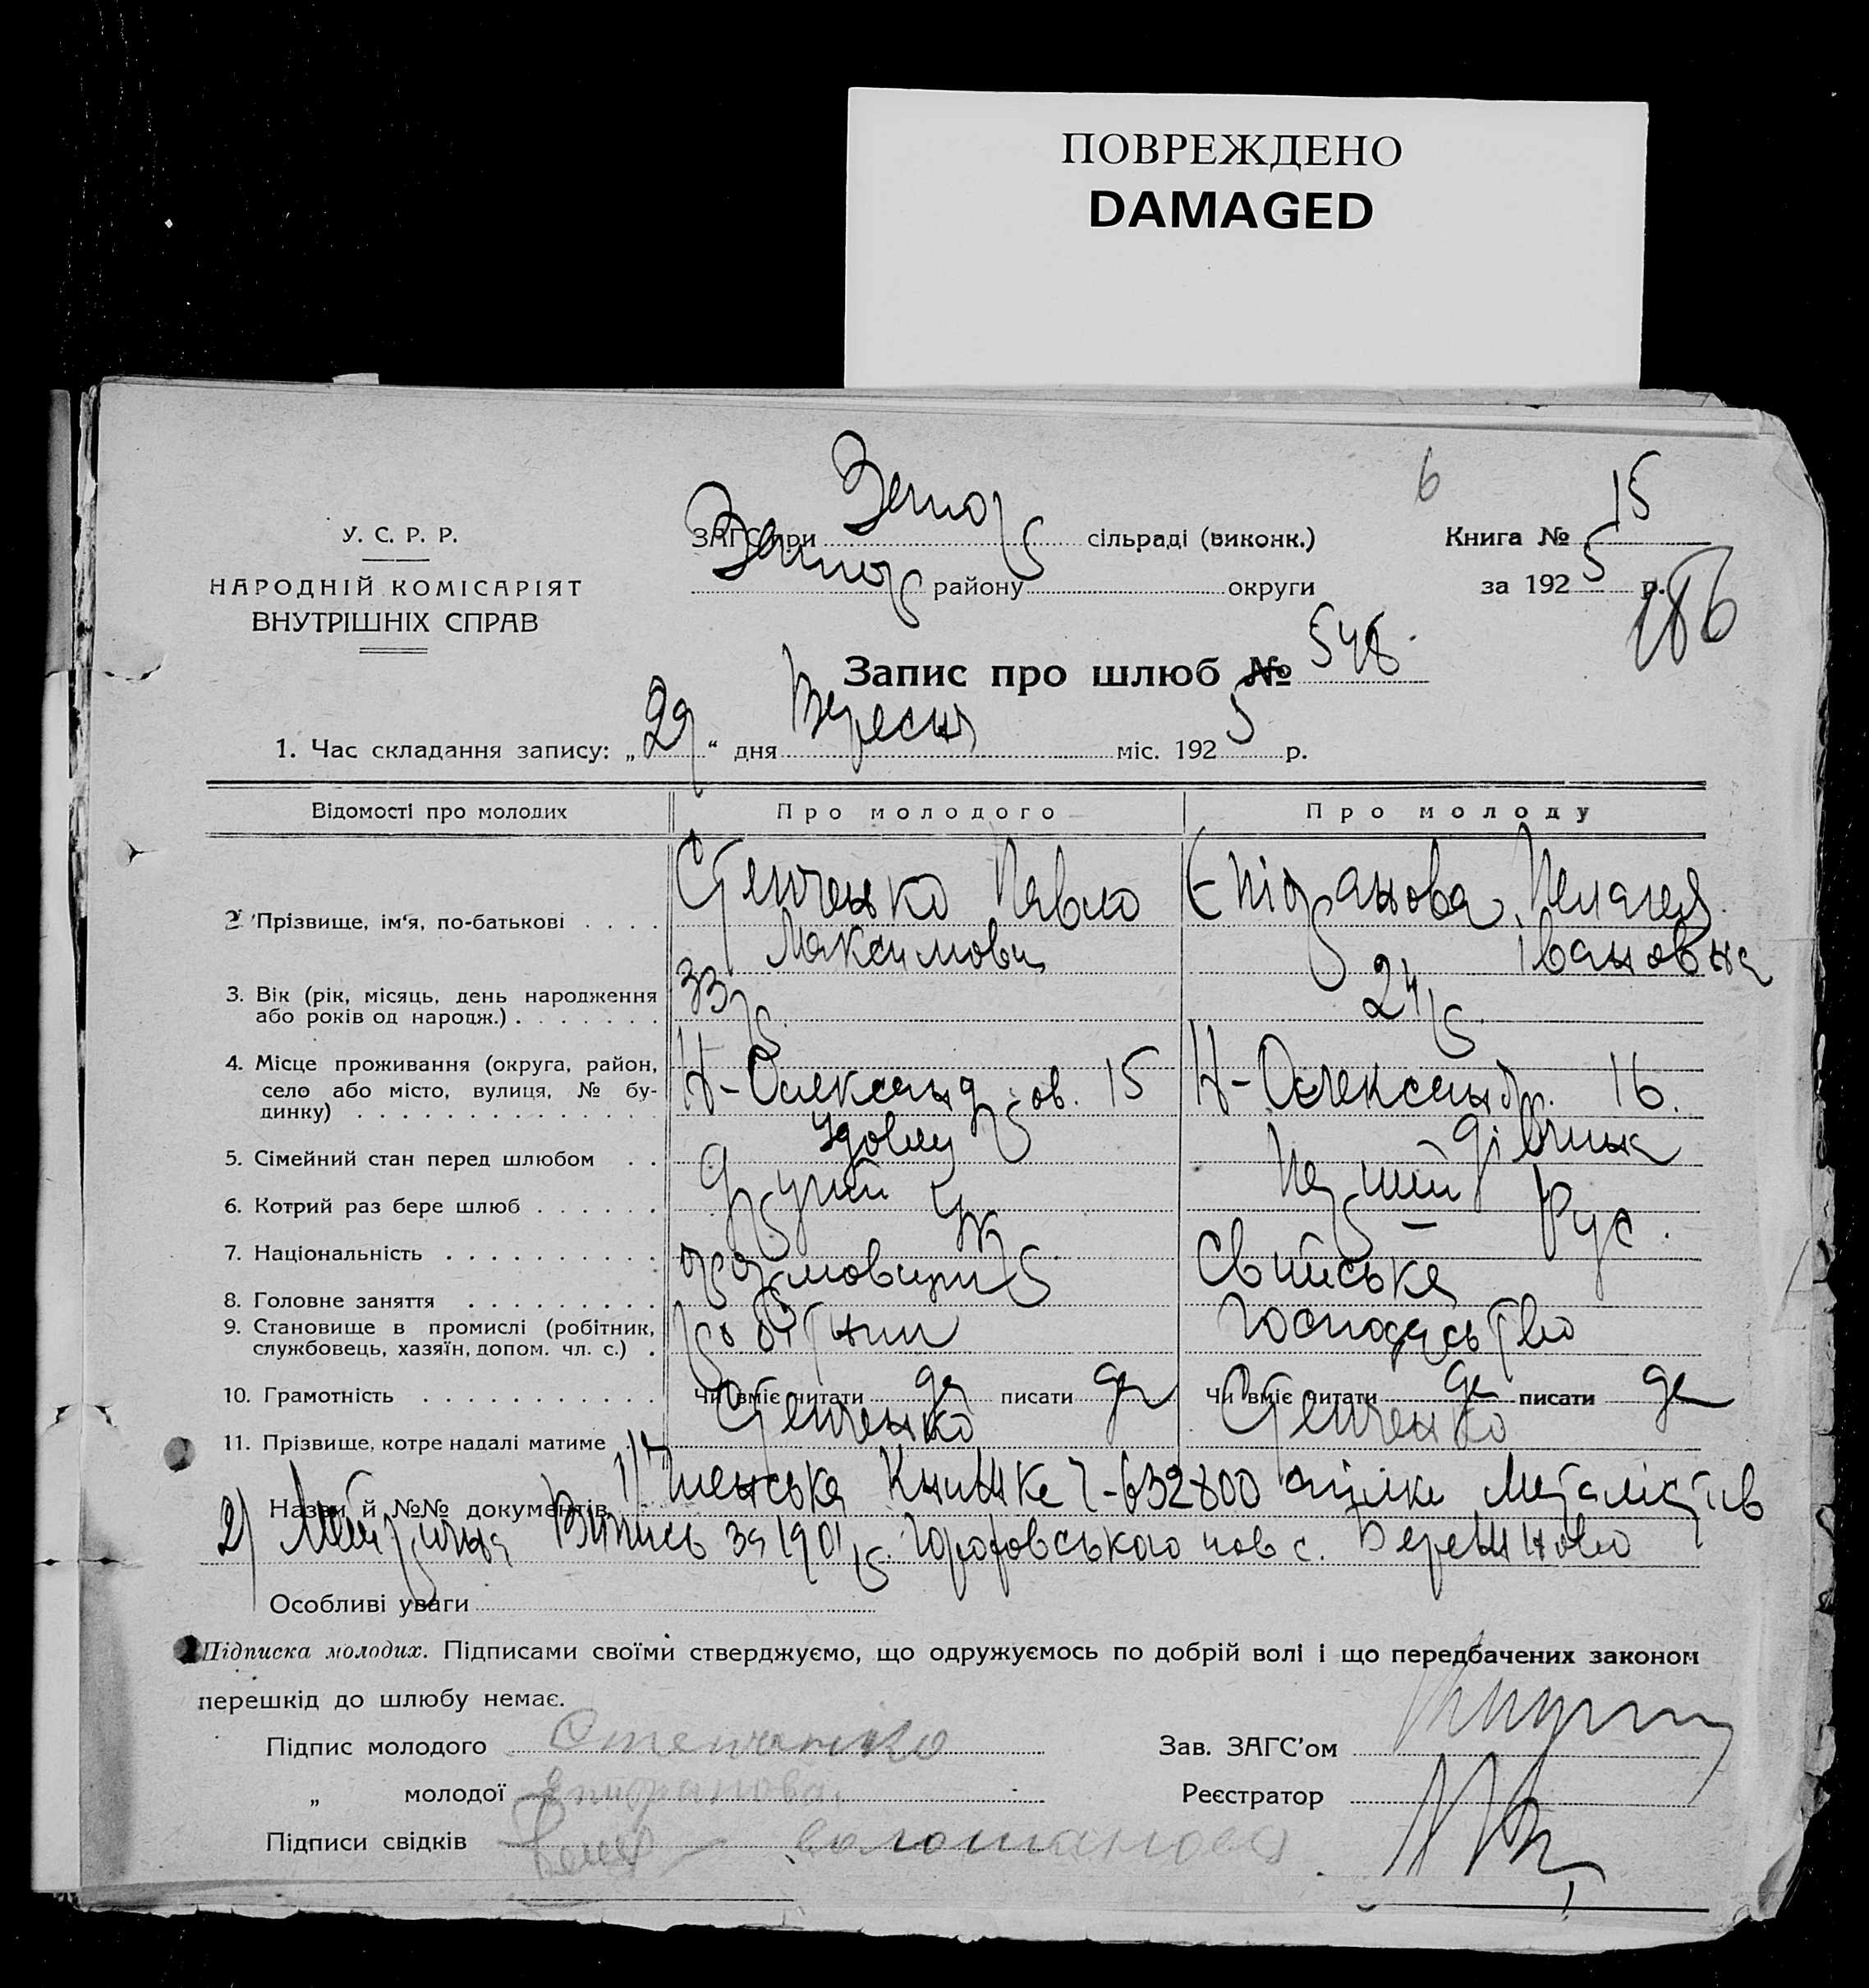 ПОВРЕЖДЕНО
DAMAGED
6
У. С. Р. Р.
НАРОДНІЙ КОМІСАРІЯТ
ВНУТРІШНІХ СПРАВ
ЗАГС при Запор сільраді (виконк.)
Запор району округи
Книга № 15
за 1925 р.
186
Запис про шлюб № 548.
1. Час складання запису: „29“ дня Вересня міс. 1925 р.
Відомості про молодих Про молодого Про молоду
2. Прізвище, ім‘я, по-батькові Степченко Павло Максимови Епіфанова Пелагея Івановна
3. Вік (рік, місяць, день народження або років од народж.) 33 р. 24 р.
4. Місце проживання (округа, район, село або місто, вулиця, № будинку) Н-Олександров. 15 Н-Олександр. 16.
5. Сімейний стан перед шлюбом удовец дівчина
6. Котрий раз бере шлюб другий перший
7. Національність Укр. Рус.
8. Головне заняття Свийське
9. Становище в промислі (робітник, службовець, хазяїн, допом. чл. с.) робітник господарство
10. Грамотність Чи вміє читати да писати да Чи вміє читати да писати да
11. Прізвище, котре надалі матиме Степченко Степченко
Назви й №№ документів 1) Членська Книжка Ч-632800 спілки Металістів
2) Метрична Випись за 1901 р. пов с. Бережново
Особливі уваги
Підписка молодих. Підписами своїми стверджуємо, що одружуємось по добрій волі і що передбачених законом
перешкід до шлюбу немає.
Підпис молодого Степченко Зав. ЗАГС’ом
„ молодої Епифанова. Реєстратор
Підписи свідків